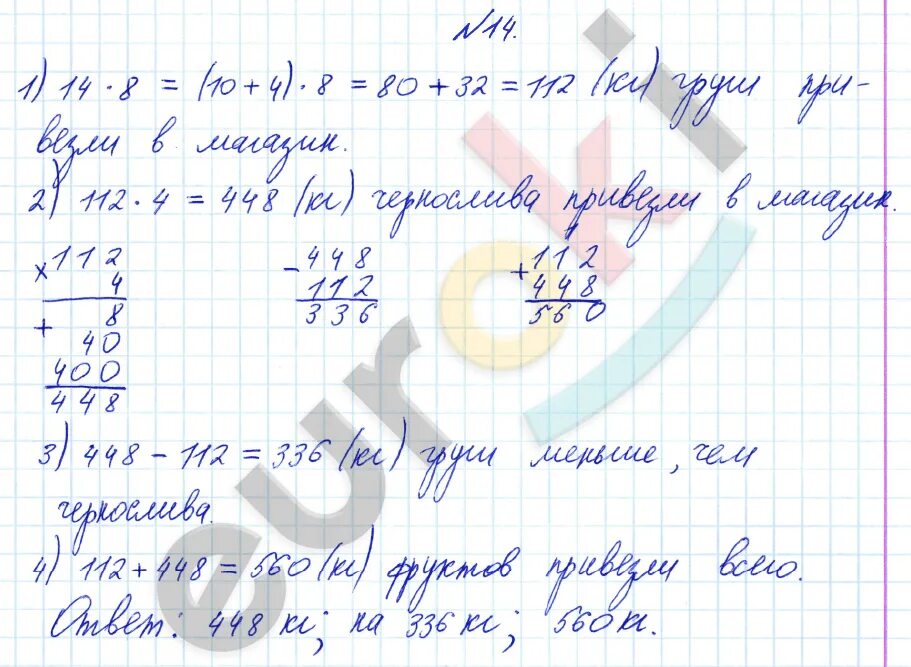 №14.
1) 14 · 8 = (10 + 4) · 8 = 80 + 32 = 112 (кг) груш при-
везли в магазин.
2) 112 · 4 = 448 (кг) чернослива привезли в магазин.
× 112
4
+ 8
40
400
448
- 448
112
336
1
+ 112
448
560
3) 448 - 112 = 336 (кг) груш меньше, чем
чернослива.
4) 112 + 448 = 560 (кг) фруктов привезли всего.
Ответ: 448 кг; на 336 кг; 560 кг.
euroki